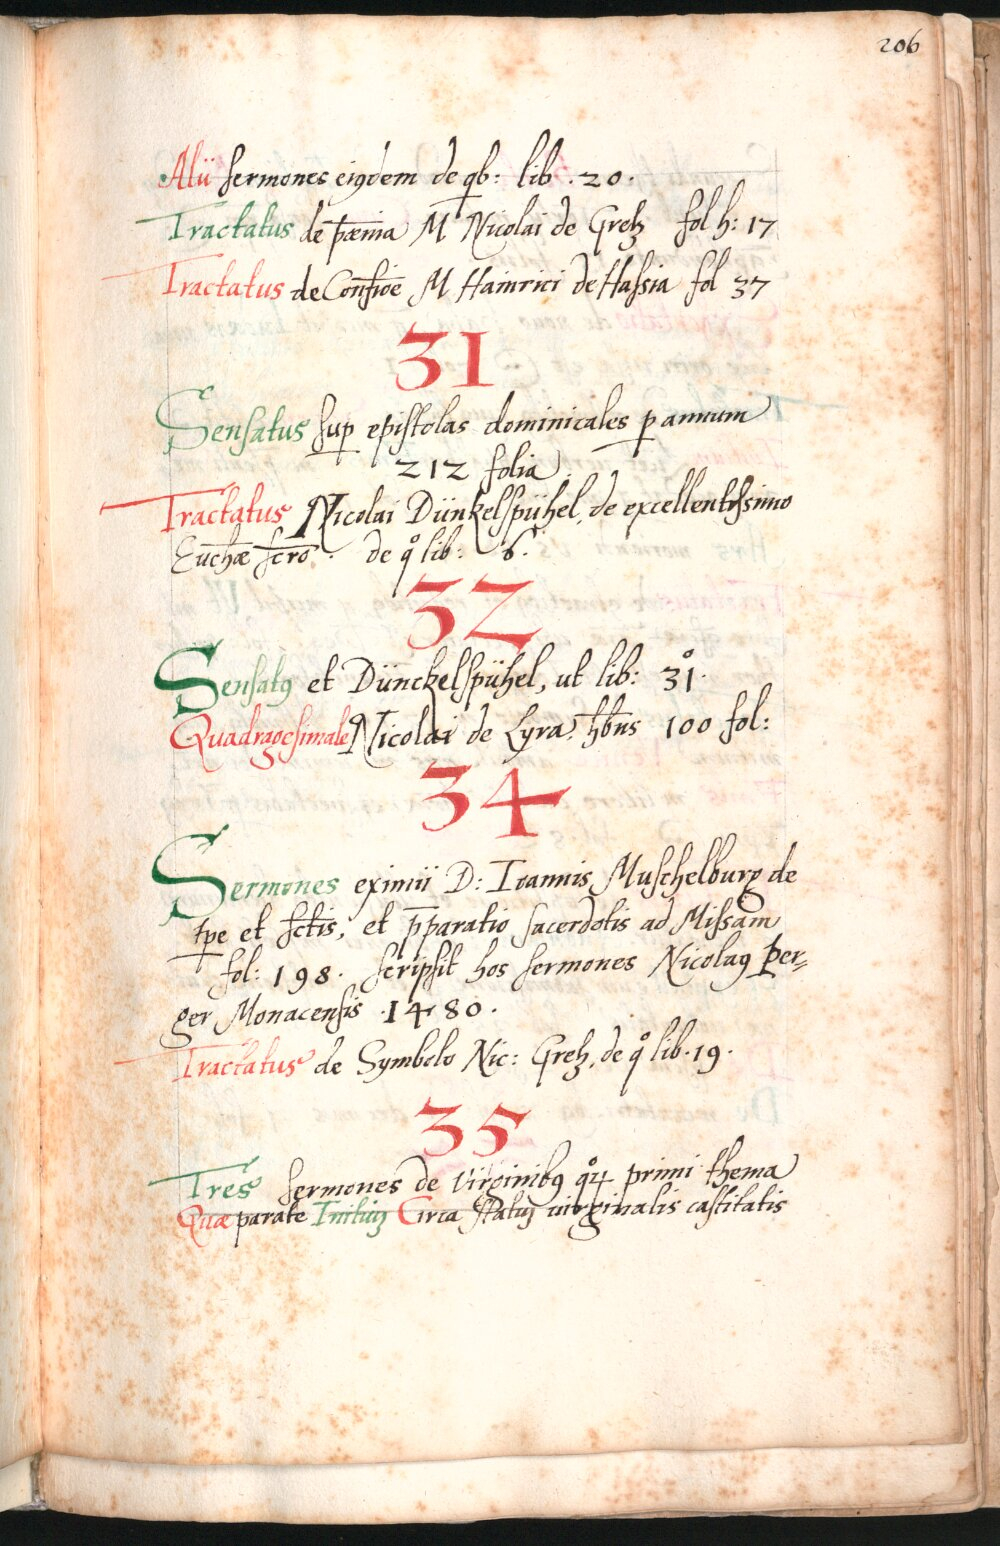 206
Alii sermones eiꝰdem de qb: lib. 20.
Tractatus de pœnia M Nicolai de Gretz fol h: 17
Tractatus de Confiōe M Hainrici de Hassia fol 37
31
Sensatus sup epistolas dominicales p annum
212 folia
Tractatus Nicolai Dünkelspühel, de excellentissimo
Euchæ scrō. de qͦ lib: 6.
32
Sensatꝰ et Dünckelspühel, ut lib: 31.
Quadragesimale Nicolai de Lyra, hbns 100 fol:
34
Sermones eximii D: Ioannis Muschelburg de
tpe et sctis, et pparatio sacerdotis ad Missam
fol: 198. scripsit hos sermones Nicolaꝰ Per-
ger Monacensis .1480.
Tractatus de Symbolo Nic: Gretz, de qͦ lib. 19.
35
Tres sermones de virginibꝰ qͦꝝ primi thema
Quæ paratæ Initiuȝ Circa statuȝ virginalis castitatis